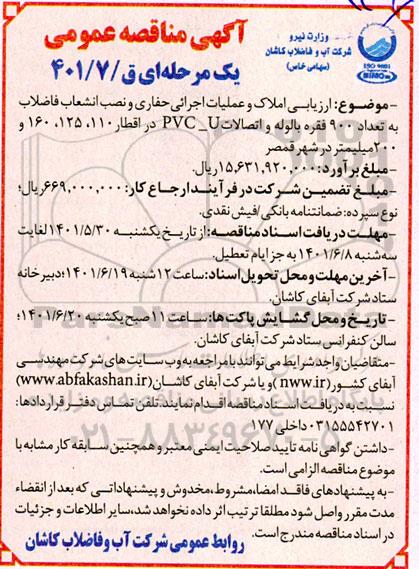 وزارت نیرو
شرکت آب و فاضلاب کاشان
(سهامی خاص)
ISO 9001
آگهی مناقصه عمومی
یک مرحله‌ای ق/۴۰۱/۷
-موضوع: ارزیابی املاک و عملیات اجرائی حفاری و نصب انشعاب فاضلاب
به تعداد ۹۰۰ فقره بالوله و اتصالات PVC _U در اقطار ۱۱۰، ۱۲۵، ۱۶۰ و
۲۰۰ میلیمتر در شهر قمصر
-مبلغ برآورد: ۱۵,۶۳۱,۹۲۰,۰۰۰ ریال.
-مبلغ تضمین شرکت در فرآیند ارجاع کار: ۶۶۹,۰۰۰,۰۰۰ ریال؛
نوع سپرده: ضمانتنامه بانکی/فیش نقدی.
-مهلت دریافت اسناد مناقصه: از تاریخ یکشنبه ۱۴۰۱/۵/۳۰ لغایت
سه‌شنبه ۱۴۰۱/۶/۸ به جز ایام تعطیل.
-آخرین مهلت و محل تحویل اسناد: ساعت ۱۲ شنبه ۱۴۰۱/۶/۱۹؛ دبیرخانه
ستاد شرکت آبفای کاشان.
- تاریخ و محل گشایش پاکت‌ها: ساعت ۱۱ صبح یکشنبه ۱۴۰۱/۶/۲۰؛
سالن کنفرانس ستاد شرکت آبفای کاشان.
-متقاضیان واجد شرایط می‌توانند با مراجعه به وب سایت‌های شرکت مهندسی
آبفای کشور (nww.ir) و یا شرکت آبفای کاشان (www.abfakashan.ir)
نسبت به دریافت اسناد مناقصه اقدام نمایند. تلفن تماس دفتر قراردادها:
۰۳۱۵۵۵۴۲۷۰۱ داخلی ۱۷۷
-داشتن گواهی نامه تایید صلاحیت ایمنی معتبر و همچنین سابقه کار مشابه با
موضوع مناقصه الزامی است.
-به پیشنهادهای فاقد امضا، مشروط، مخدوش و پیشنهاداتی که بعد از انقضاء
مدت مقرر واصل شود مطلقا ترتیب اثر داده نخواهد شد، سایر اطلاعات و جزئیات
در اسناد مناقصه مندرج است.
روابط عمومی شرکت آب و فاضلاب کاشان